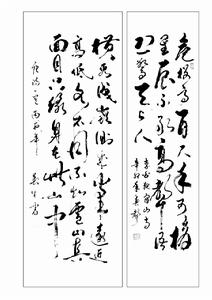 危楼高百尺手可摘
星辰不敢高声语
恐惊天上人
李白夜宿山寺
横看成岭侧成峰远近
高低各不同不识庐山真
面目只缘身在此山中